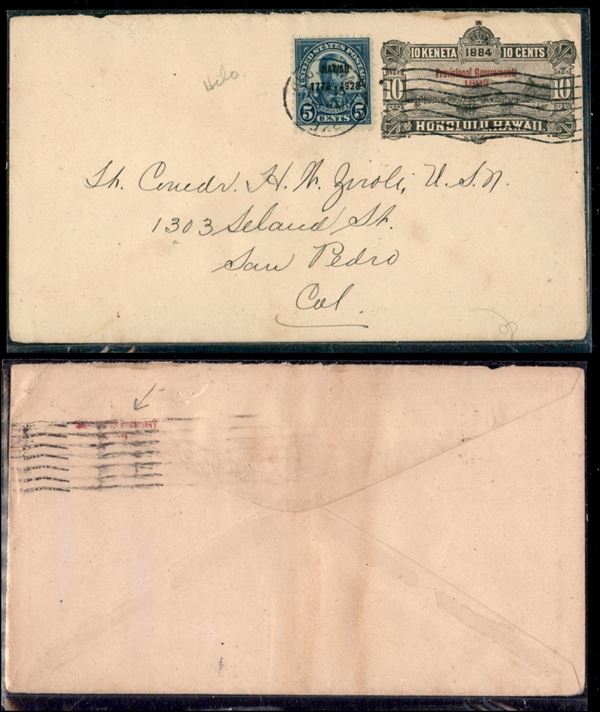 10 KENETA 1884 10 CENTS
UNITED STATES POSTAGE
HAWAII
1778 - 1928
5 CENTS 5
Provisional Government
1893
10 10
HONOLULU, HAWAII.
Hilo
Lt. Comdr. H. W. Ziroli, U.S.N.
1303 Leland St.
San Pedro
Cal.